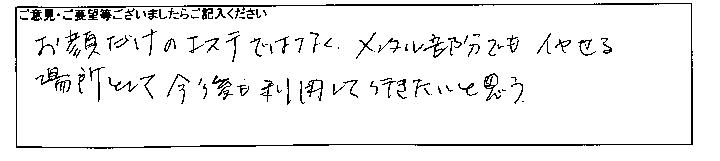 ご意見・ご要望等ございましたらご記入ください
お顔だけのエステではなく、メンタル部分でもイヤせる
場所として今後も利用して行きたいと思う